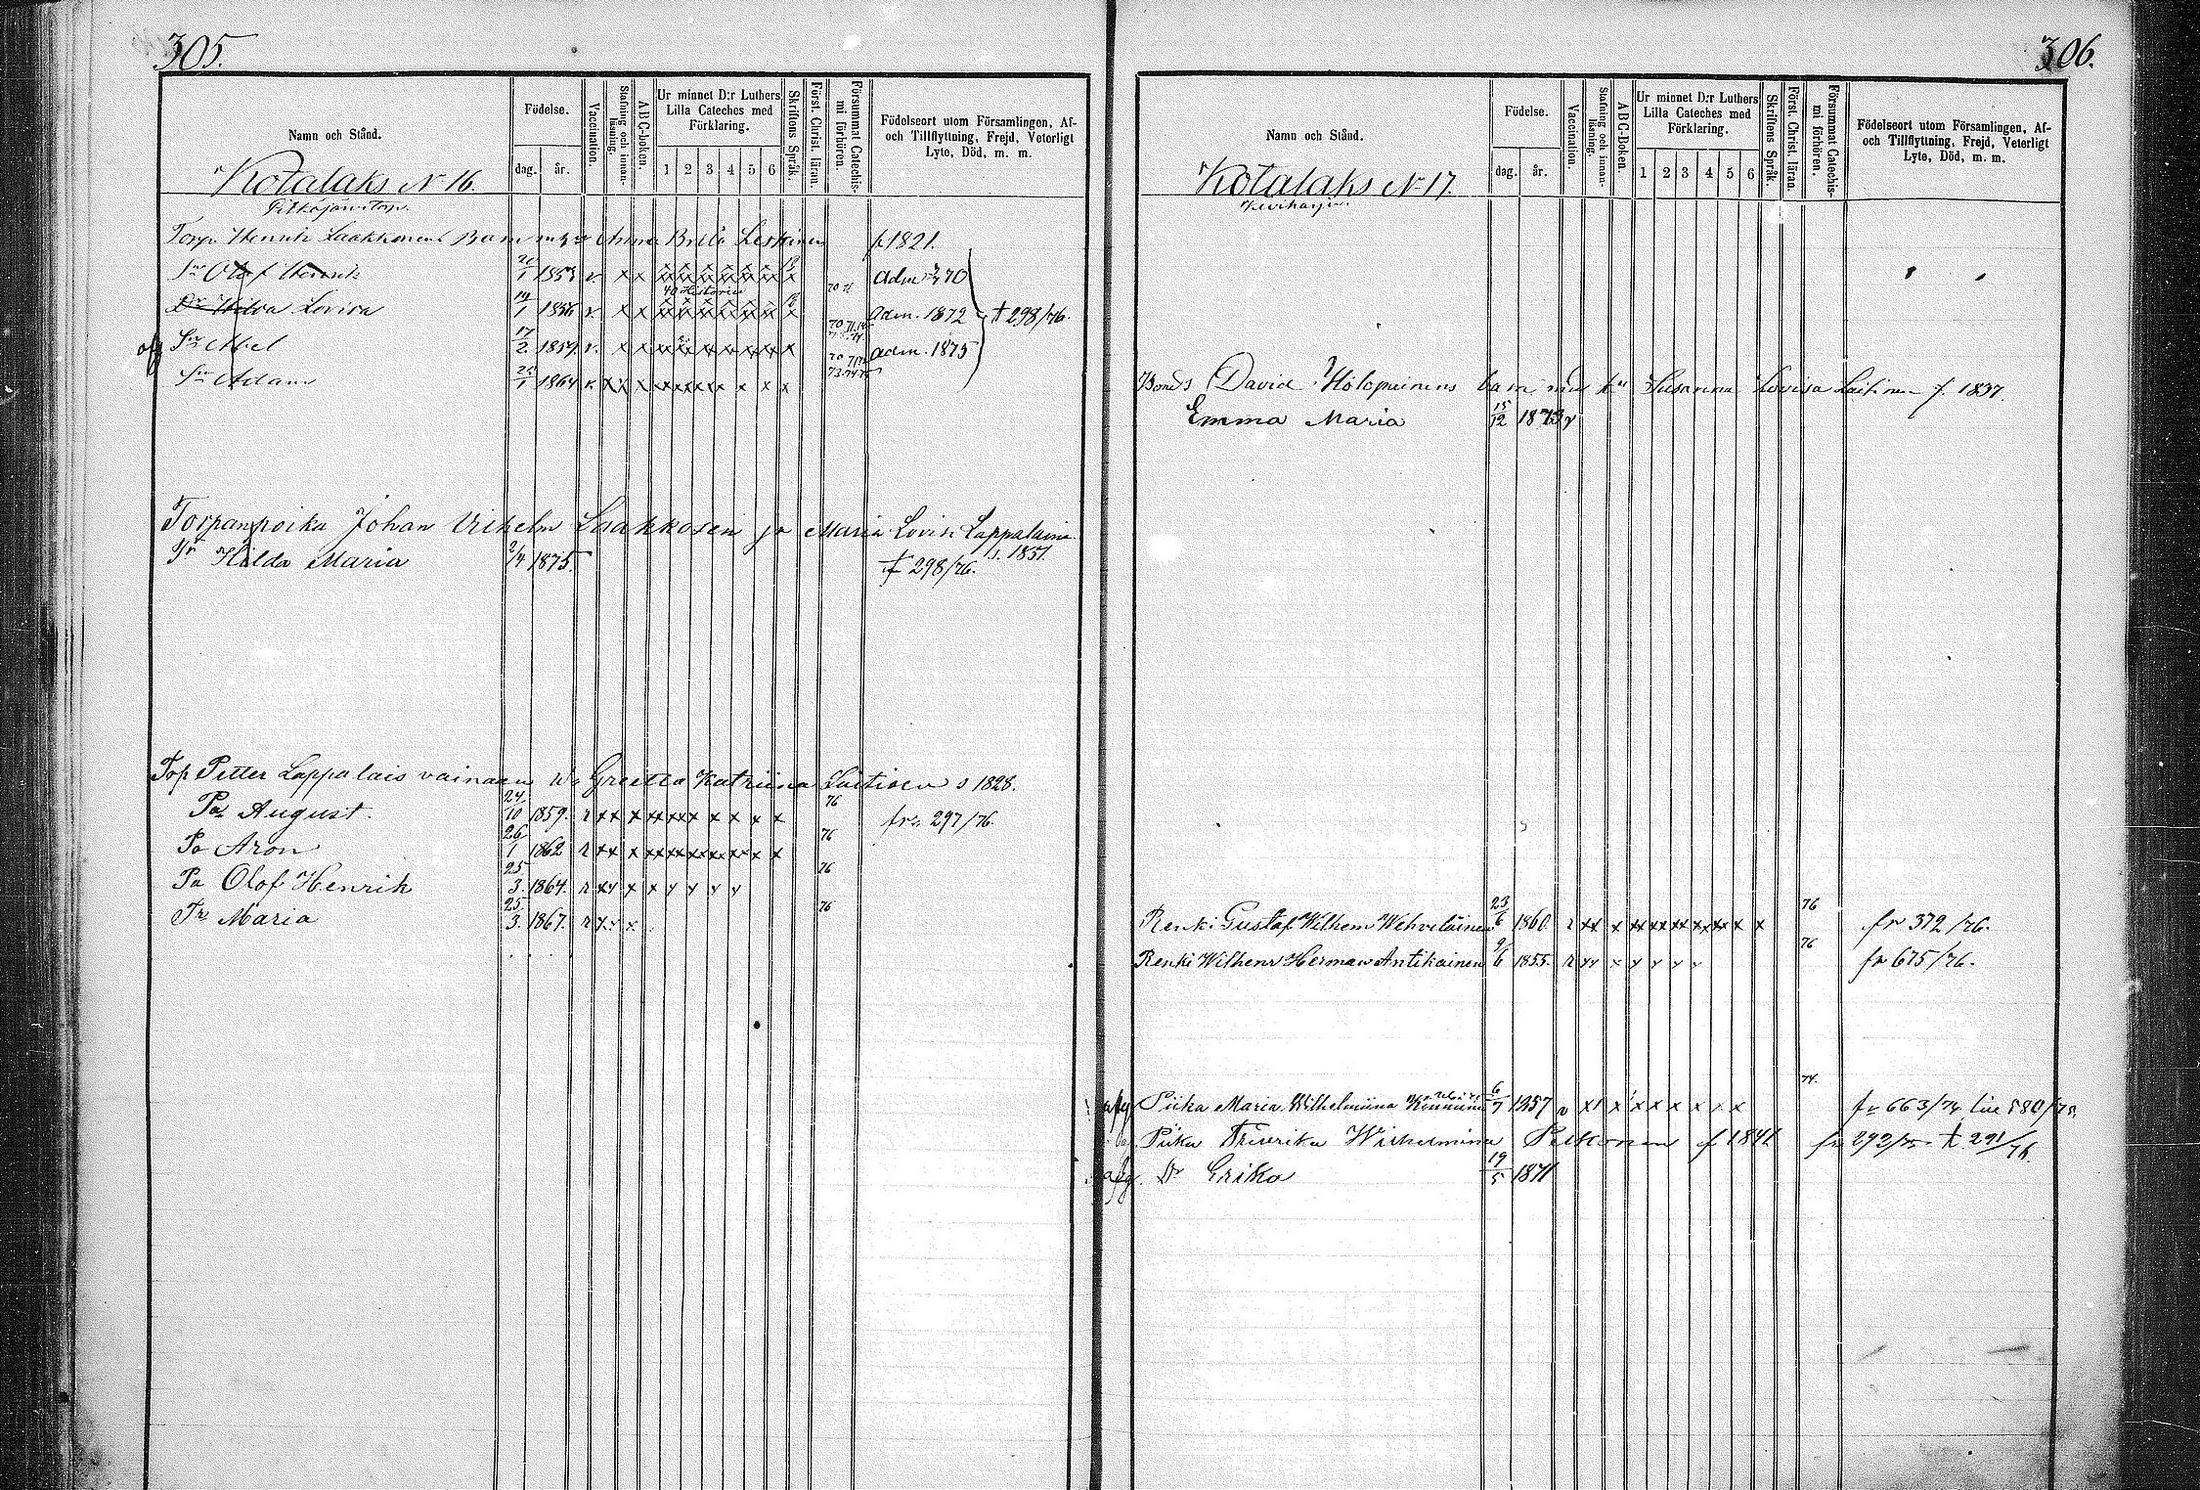 305.
Namn och Stånd.
Födelse.
dag. år.
Vaccination.
Stafning och innan-läsning.
ABC-boken.
Ur minnet D:r Luthers Lilla Cateches med Förklaring.
1 2 3 4 5 6
Skriftens Språk.
Först. Christ. läran.
Försummat Catechis-mi förhören.
Födelseort utom Församlingen, Af- och Tillflyttning, Frejd, Veterligt Lyte, Död, m. m.
Kotalaks N 16.
Torp. Henrik Laakkonens Barn Anna Brita Leskinen f 1821.
Sn Olof Henrik 1853 v. x x adm 70
40 Historier
Dr Hilda Lovisa 19/1 1856 v. x x adm. 1872 298/76.
afg Sn Abel 17/2 1859 v. x x adm. 1875
Sn Adam 1864 v.
Torpanpoika Johan Vilhelm Laakkosen ja Maria Lovisa Lappalainen s. 1851.
Tr Hilda Maria 2/4 1875. 298/76.
Torp Petter Lappalais vainaan Wa Greetta Katriina Laitisen s 1828.
Pa August. 24/10 1859. r xx x xx xx x x x x 76 fr. 297/76.
Pa Aron 26/1 1862 r xx x 76
Pa Olof Henrik 25/3. 1864. r 76
Tr Maria 25/3. 1867. r 76
306.
Namn och Stånd.
Födelse.
dag. år.
Vaccination.
Stafning och innan-läsning.
ABC-Boken.
Ur minnet D:r Luthers Lilla Cateches med Förklaring.
1 2 3 4 5 6
Skriftens Språk.
Först. Christ. läran.
Försummat Catechis-mi förhören.
Födelseort utom Församlingen, Af- och Tillflyttning, Frejd, Veterligt Lyte, Död, m. m.
Kotalaks N 17.
Bonds David Holopainens barn med Susanna Lovisa Laitinen f. 1837.
Emma Maria 15/12 1873 v
Renki Gustaf Wilhem Wehviläinen 23/6 1860 r xx x 76 fr 372/76.
Renki Wilhem Herman Antikainen 9/6 1855. r 76 fr 675/76.
afg Piika Maria Wilhelmiina 6/7 1857 74. fr 663/74
Piika Fredrika Wilhelmina Pelkonen f 1841 fr 292/75 291/76.
afg. Dr Erika 19/5 1871